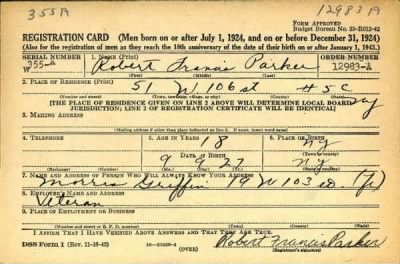 355A
12983A
FORM APPROVED
Budget Bureau No. 33-R012-42
REGISTRATION CARD—(Men born on or after July 1, 1924, and on or before December 31, 1924)
(Also for the registration of men as they reach the 18th anniversary of the date of their birth on or after January 1, 1943.)
SERIAL NUMBER
1. NAME (Print)
ORDER NUMBER
W 355-A
Robert Francis Parker
12983-A
(First) (Middle) (Last)
2. PLACE OF RESIDENCE (Print)
51 W 106 st #5C NY
(Number and street) (Town, township, village, or city) (County) (State)
[THE PLACE OF RESIDENCE GIVEN ON LINE 2 ABOVE WILL DETERMINE LOCAL BOARD
JURISDICTION; LINE 2 OF REGISTRATION CERTIFICATE WILL BE IDENTICAL]
3. MAILING ADDRESS
[Mailing address if other than place indicated on line 2. If same, insert word same]
4. TELEPHONE
5. AGE IN YEARS
18
6. PLACE OF BIRTH
NY
DATE OF BIRTH
9 9 27
NY
(Exchange) (Number)
(Mo.) (Day) (Yr.)
(State or country)
7. NAME AND ADDRESS OF PERSON WHO WILL ALWAYS KNOW YOUR ADDRESS
Griffin 19 W 103
8. EMPLOYER'S NAME AND ADDRESS
Veteran
9. PLACE OF EMPLOYMENT OR BUSINESS
(Number and street or R. F. D. number) (Town) (County) (State)
I AFFIRM THAT I HAVE VERIFIED ABOVE ANSWERS AND THAT THEY ARE TRUE.
DSS Form 1 (Rev. 11-16-42)
(OVER)
Robert Francis Parker
(Registrant's signature)